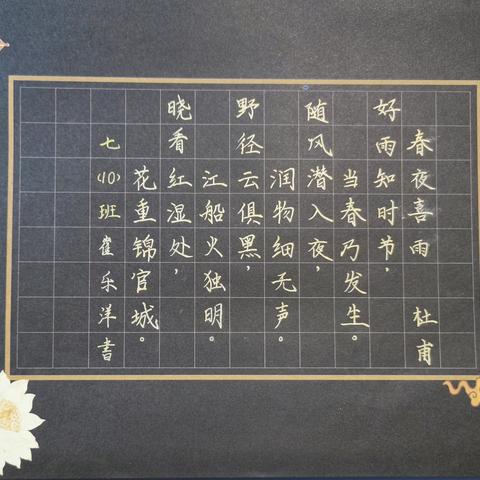 春夜喜雨 杜甫
好雨知时节，
当春乃发生。
随风潜入夜，
润物细无声。
野径云俱黑，
江船火独明。
晓看红湿处，
花重锦官城。
七(10)班崔乐洋书